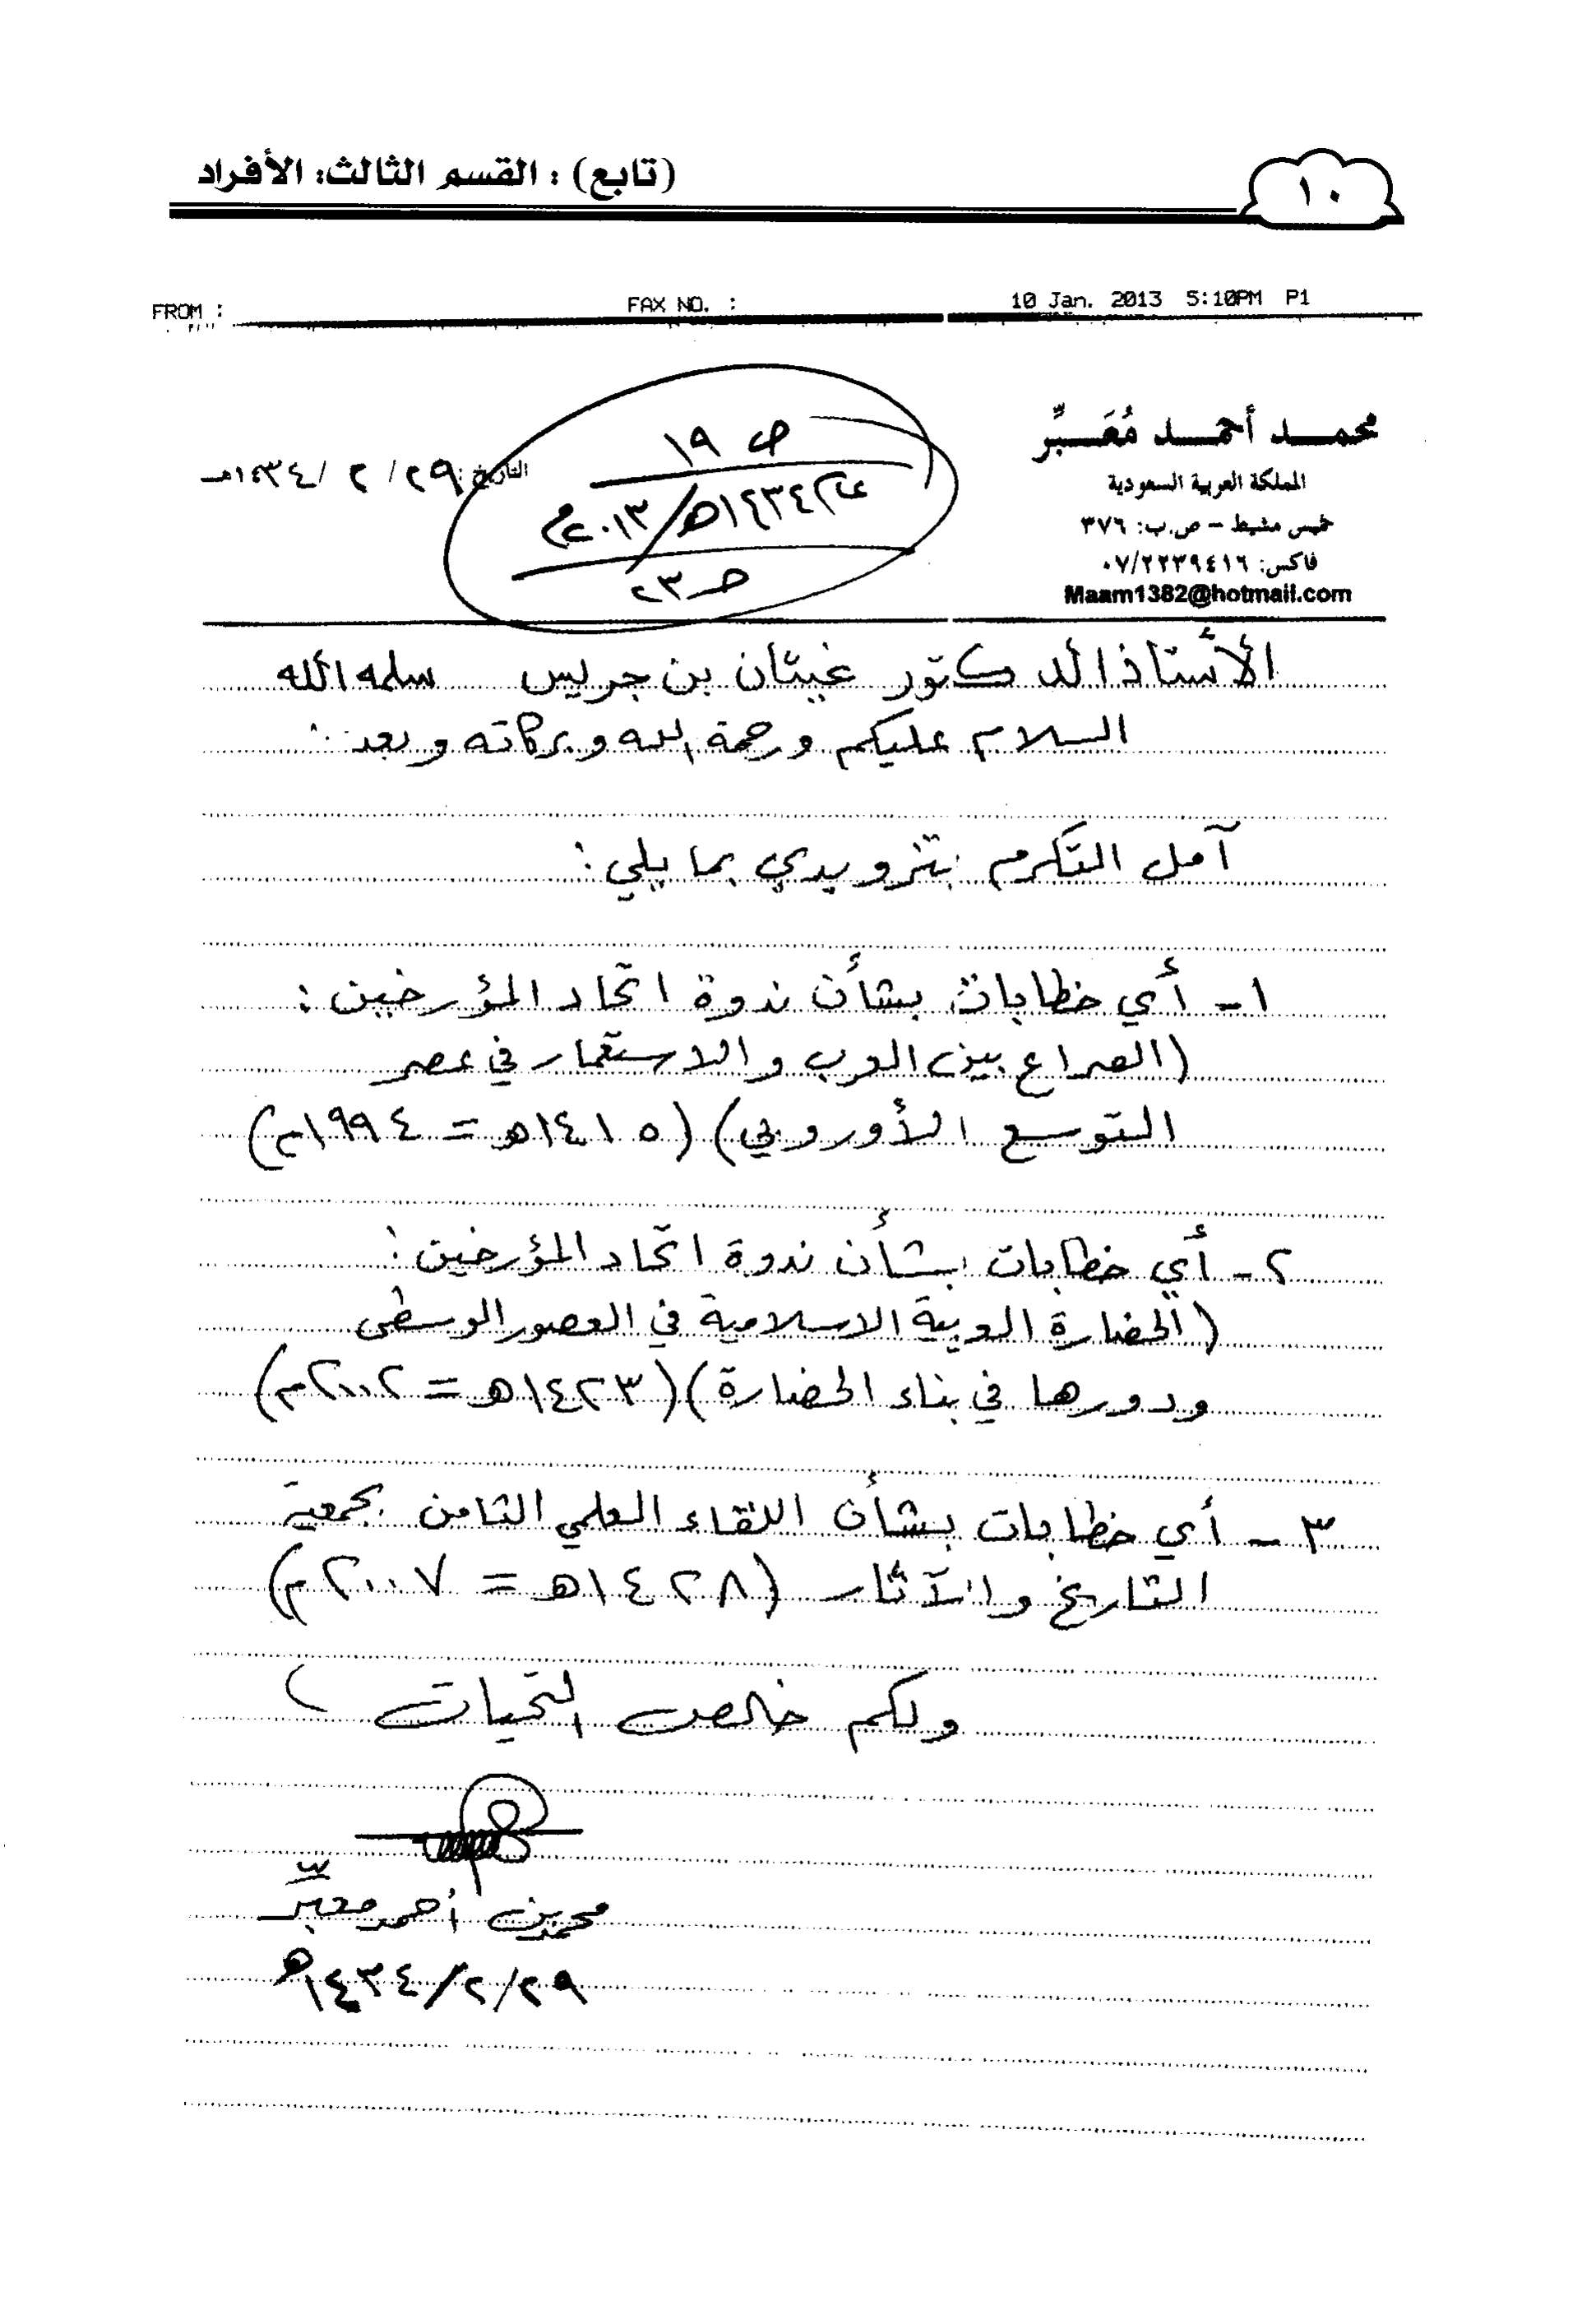 ١٠
(تابع) : القسم الثالث: الأفراد
FROM :
FAX NO. :
10 Jan. 2013 5:10PM P1
محمد أحمد مُعَبِّر
المملكة العربية السعودية
خميس مشيط – ص.ب: ٣٧٦
فاكس: ٠٧/٢٢٣٩٤١٦
Maam1382@hotmail.com
ص ١٩
عام ١٤٣٤هـ/٢٠١٣م
صـ ٢٣
التاريخ: ٢٩/ ٢ /١٤٣٤هـ
الأستاذ الدكتور غيثان بن جريس سلمه الله
السلام عليكم ورحمة الله وبركاته وبعد:
آمل التكرم بتزويدي بما يلي:
١- أي خطابات بشأن ندوة اتحاد المؤرخين:
(الصراع بين العرب والاستعمار في عصر
التوسع الأوروبي) (١٤١٥هـ = ١٩٩٤م)
٢- أي خطابات بشأن ندوة اتحاد المؤرخين:
(الحضارة العربية الاسلامية في العصور الوسطى
ودورها في بناء الحضارة) (١٤٢٣هـ = ٢٠٠٢م)
٣- أي خطابات بشأن اللقاء العلمي الثامن بجمعية
التاريخ والآثار (١٤٢٨هـ = ٢٠٠٧م)
ولكم خالص التحيات،
محمد بن أحمد معبّر
٢٩/٢/١٤٣٤هـ